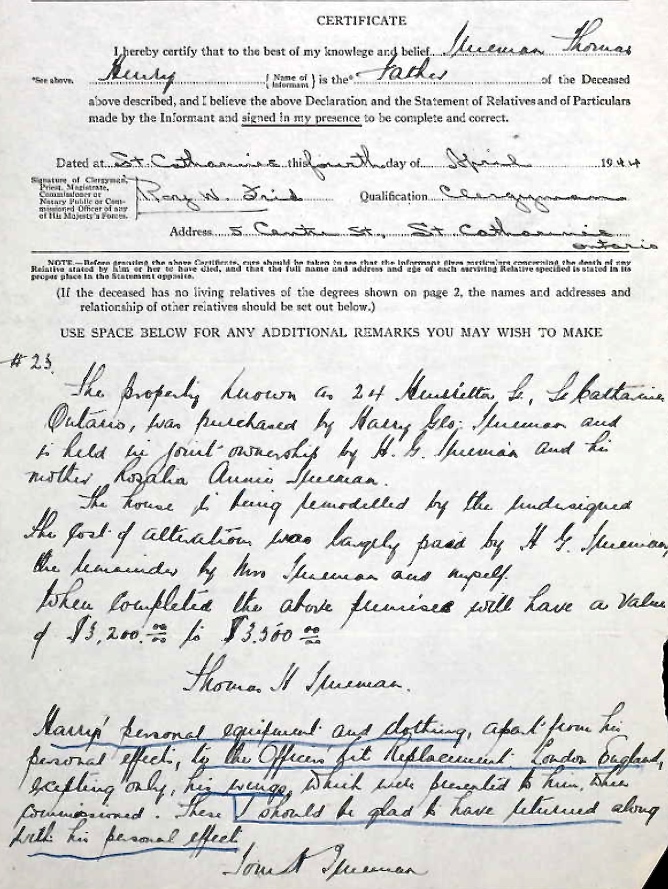 CERTIFICATE
I hereby certify that to the best of my knowlege and belief Spreeman Thomas
*See above. Henry { Name of Informant } is the* Father of the Deceased
above described, and I believe the above Declaration and the Statement of Relatives and of Particulars
made by the Informant and signed in my presence to be complete and correct.
Dated at St. Catharines this fourth day of April 1944
Signature of Clergyman,
Priest, Magistrate,
Commissioner or
Notary Public or Com-
missioned Officer of any
of His Majesty's Forces.
Roy W. Frid Qualification Clergyman
Address 5 Centre St., St Catharines
Ontario
NOTE.—Before granting the above Certificate, care should be taken to see that the informant gives particulars concerning the death of any
Relative stated by him or her to have died, and that the full name and address and age of each surviving Relative specified is stated in its
proper place in the Statement opposite.
(If the deceased has no living relatives of the degrees shown on page 2, the names and addresses and
relationship of other relatives should be set out below.)
USE SPACE BELOW FOR ANY ADDITIONAL REMARKS YOU MAY WISH TO MAKE
# 23.
The property known as 24 Henrietta St, St Catharines
Ontario, was purchased by Harry Geo. Spreeman and
is held in joint ownership by H. G. Spreeman and his
mother Rosalia Annie Spreeman.
The house is being remodelled by the undersigned
the cost of alterations was largely paid by H G. Spreeman,
the remainder by Mrs Spreeman and myself.
When completed the above premises will have a value
of $3,200.00 to $3,500 00
Thomas H Spreeman.
Harry's personal equipment and clothing, apart from his
personal effects, to the Officers' Kit Replacement. London England,
excepting only, his wings, which were presented to him, when
commissioned. These I should be glad to have returned along
with his personal effects
Tom H Spreeman